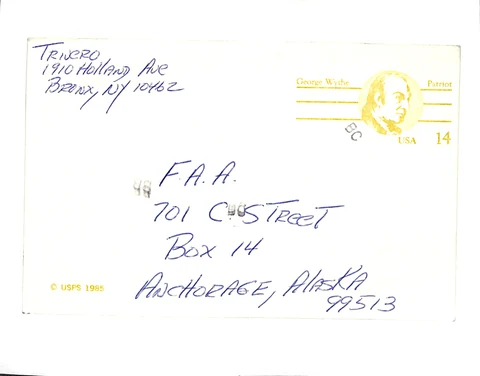 TRIVERO
1910 HOLLAND AVE
BRONX, NY 10462
George Wythe Patriot
BC
USA 14
F.A.A.
701 C STREET
BOX 14
ANCHORAGE, ALASKA
99513
© USPS 1985